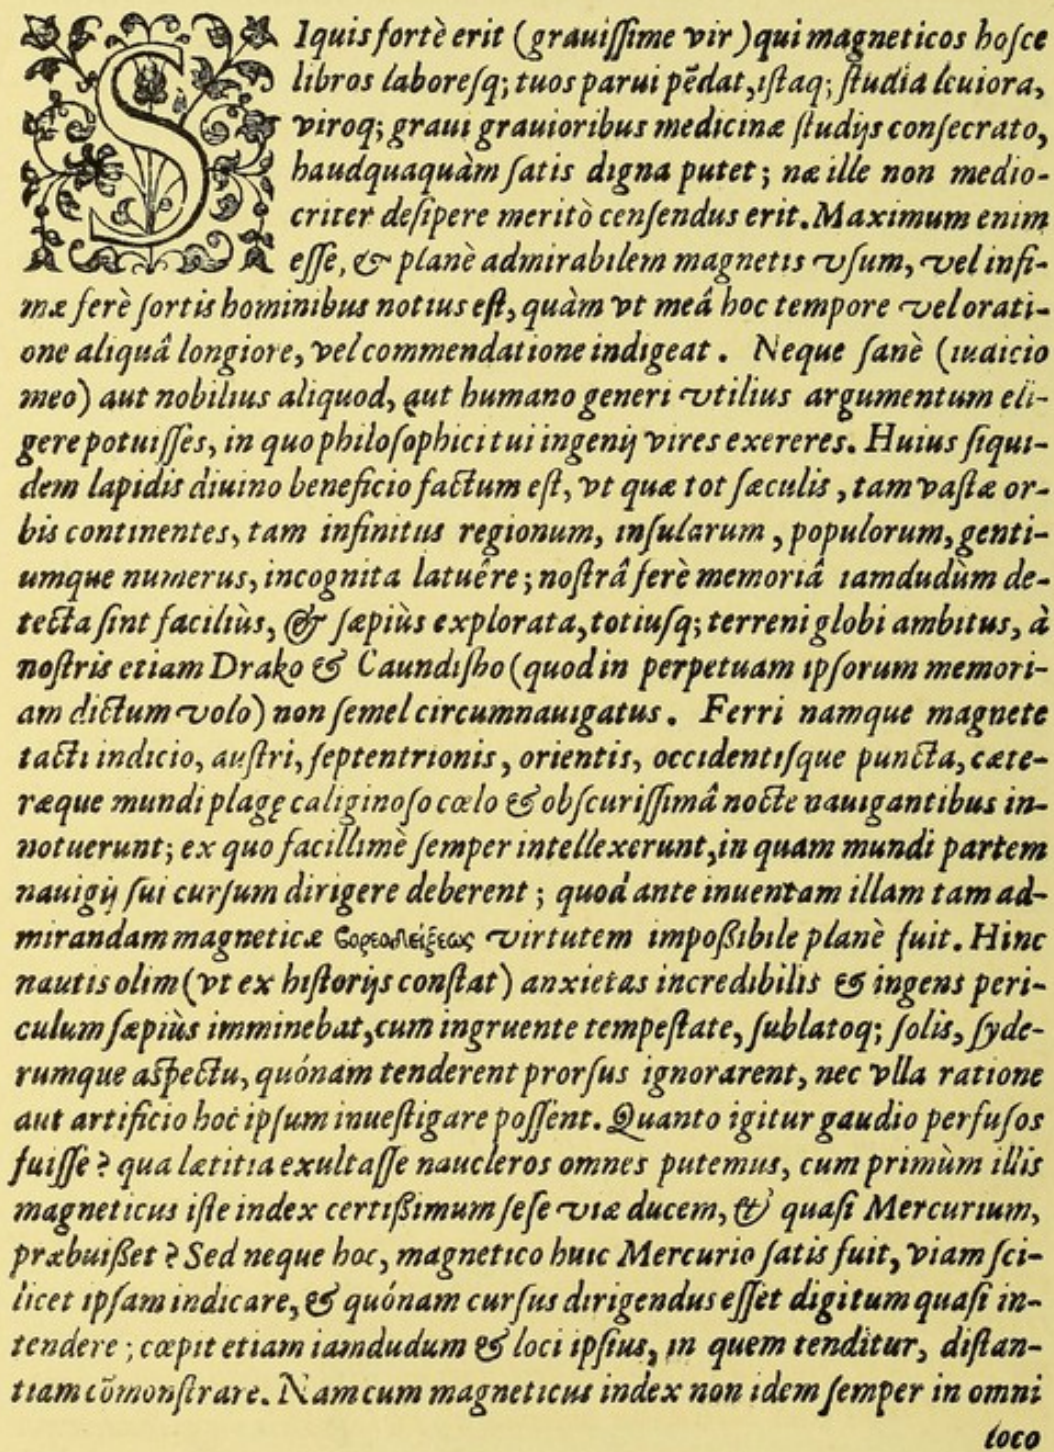 SIquis fortè erit (grauiſſime vir) qui magneticos hoſce
libros laboreſq; tuos parui pēdat, iſtaq; ſtudia leuiora,
viroq; graui grauioribus medicinæ ſtudijs conſecrato,
haudquaquàm ſatis digna putet; næ ille non medio-
criter deſipere meritò cenſendus erit. Maximum enim
eſſe, & planè admirabilem magnetis vſum, vel infi-
mæ ferè ſortis hominibus notius eſt, quàm vt meâ hoc tempore vel orati-
one aliquâ longiore, vel commendatione indigeat. Neque ſanè (iudicio
meo) aut nobilius aliquod, aut humano generi vtilius argumentum eli-
gere potuiſſes, in quo philoſophici tui ingenij vires exereres. Huius ſiqui-
dem lapidis diuino beneficio factum eſt, vt quæ tot ſæculis, tam vaſtæ or-
bis continentes, tam infinitus regionum, inſularum, populorum, genti-
umque numerus, incognita latuêre; noſtrâ ferè memoriâ iamdudùm de-
tecta ſint faciliùs, & ſæpiùs explorata, totiuſq; terreni globi ambitus, à
noſtris etiam Drako & Caundiſho (quod in perpetuam ipſorum memori-
am dictum volo) non ſemel circumnauigatus. Ferri namque magnete
tacti indicio, auſtri, ſeptentrionis, orientis, occidentiſque puncta, cæte-
ræque mundi plagę caliginoſo cœlo & obſcuriſſimâ nocte nauigantibus in-
notuerunt; ex quo facillimè ſemper intellexerunt, in quam mundi partem
nauigij ſui curſum dirigere deberent; quod ante inuentam illam tam ad-
mirandam magneticæ βορεοδείξεως virtutem impoßibile planè fuit. Hinc
nautis olim (vt ex hiſtorijs conſtat) anxietas incredibilis & ingens peri-
culum ſæpiùs imminebat, cum ingruente tempeſtate, ſublatoq; ſolis, ſyde-
rumque aſpectu, quónam tenderent prorſus ignorarent, nec vlla ratione
aut artificio hoc ipſum inueſtigare poſſent. Quanto igitur gaudio perfuſos
fuiſſe? qua lætitia exultaſſe naucleros omnes putemus, cum primùm illis
magneticus iſte index certißimum ſeſe viæ ducem, & quaſi Mercurium,
præbuißet? Sed neque hoc, magnetico huic Mercurio ſatis fuit, viam ſci-
licet ipſam indicare, & quónam curſus dirigendus eſſet digitum quaſi in-
tendere; cœpit etiam iamdudum & loci ipſius, in quem tenditur, diſtan-
tiam cōmonſtrare. Nam cum magneticus index non idem ſemper in omni
loco